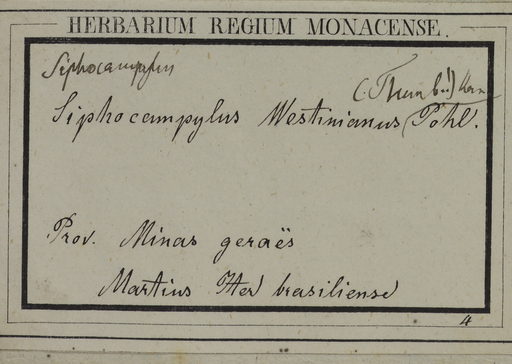 HERBARIUM REGIUM MONACENSE.
Siphocampylus
(Thunb.)
Siphocampylus Westinianus Pohl.
Prov. Minas geraës
Martius Iter brasiliense
4